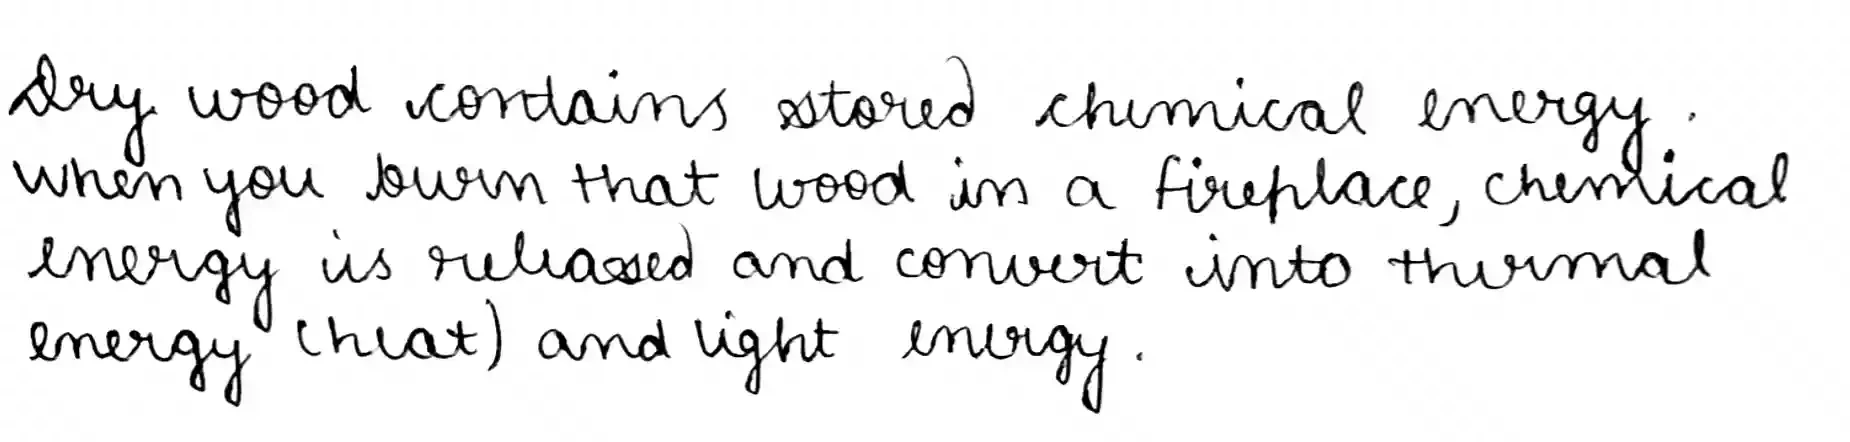 Dry wood contains stored chemical energy.
When you burn that wood in a fireplace, chemical
energy is released and convert into thermal
energy (heat) and light energy.